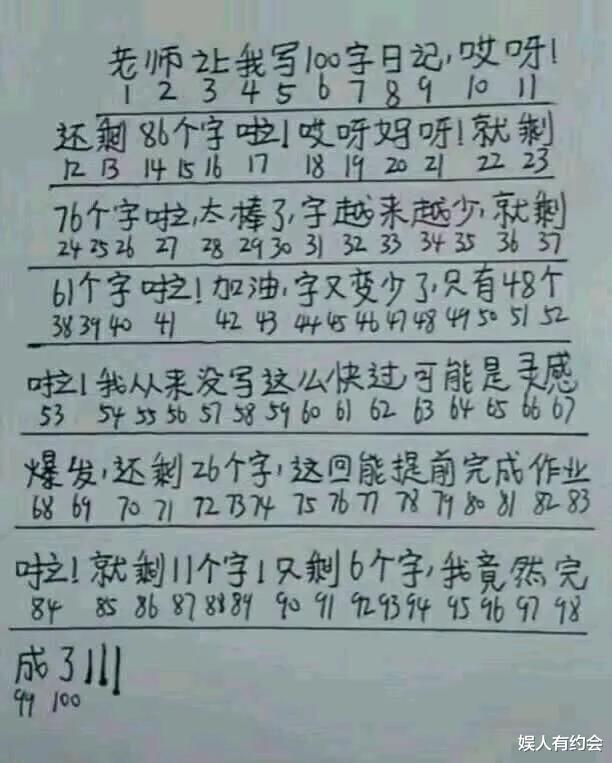 老师让我写100字日记,哎呀!
1 2 3 4 5 6 7 8 9 10 11
还剩86个字啦!哎呀妈呀!就剩
12 13 14 15 16 17 18 19 20 21 22 23
76个字啦,太棒了,字越来越少,就剩
24 25 26 27 28 29 30 31 32 33 34 35 36 37
61个字啦!加油,字又变少了,只有48个
38 39 40 41 42 43 44 45 46 47 48 49 50 51 52
啦!我从来没写这么快过,可能是灵感
53 54 55 56 57 58 59 60 61 62 63 64 65 66 67
爆发,还剩26个字,这回能提前完成作业
68 69 70 71 72 73 74 75 76 77 78 79 80 81 82 83
啦!就剩11个字!只剩6个字,我竟然完
84 85 86 87 88 89 90 91 92 93 94 95 96 97 98
成了!!!
99 100
娱人有约会